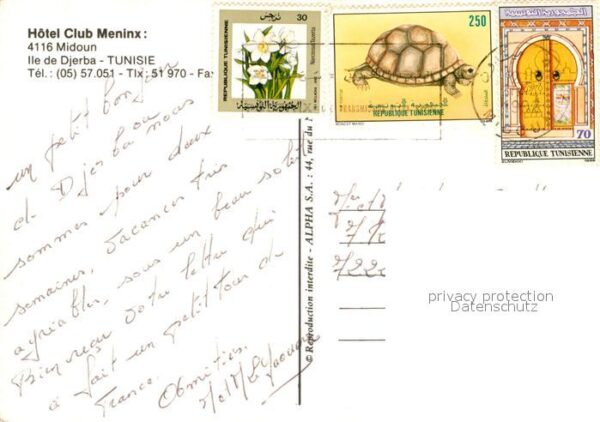 Hôtel Club Meninx :
4116 Midoun
Ile de Djerba - TUNISIE
Tél. : (05) 57.051 - Tlx : 51 970 - Fax
un petit bonjour
de Djerba ou nous
sommes pour deux
semaines, vacances très
agréables, sous un beau soleil
Bien reçu votre lettre qui
a fait un petit tour de
France. Amitiés.
© Reproduction interdite - ALPHA S.A. : 44, rue du
نرجس 30
REPUBLIQUE TUNISIENNE
الجمهورية التونسية
250
الجمهورية التونسية
REPUBLIQUE TUNISIENNE
الجمهورية التونسية
70
REPUBLIQUE TUNISIENNE
privacy protection
Datenschutz